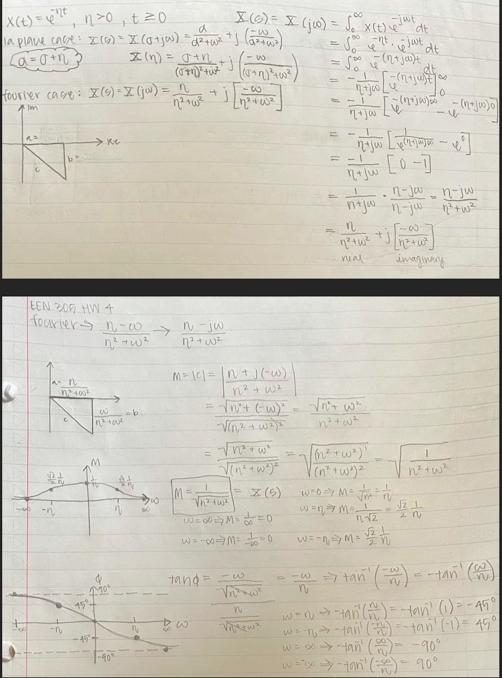 x(t) = e^-ηt, η>0, t≥0
laplace case: X(s) = X(σ+jω) = a/(a²+ω²) + j(-ω/(a²+ω²))
a = σ+η
X(η) = (σ+η)/((σ+η)²+ω²) + j(-ω/((σ+η)²+ω²))
fourier case: X(s) = X(jω) = η/(η²+ω²) + j[-ω/(η²+ω²)]
Im
a=
Re
b=
c
X(s) = X(jω) = ∫₀^∞ x(t) e^-jωt dt
= ∫₀^∞ e^-ηt · e^-jωt dt
= ∫₀^∞ e^-(η+jω)t dt
= -1/(η+jω) [e^-(η+jω)t]₀^∞
= -1/(η+jω) [e^-(η+jω)∞ - e^-(η+jω)0]
= -1/(η+jω) [1/e^(η+jω)∞ - e⁰]
= -1/(η+jω) [0 - 1]
= 1/(η+jω) · (η-jω)/(η-jω) = (η-jω)/(η²+ω²)
= η/(η²+ω²) + j[-ω/(η²+ω²)]
real imaginary
EEN 305 HW 4
fourier → (η-ω)/(η²+ω²) → (η-jω)/(η²+ω²)
a= η/(η²+ω²)
ω/(η²+ω²) = b
c
M = |c| = |(η + j(-ω))/(η²+ω²)|
= √(η²+(-ω)²)/√((η²+ω²)²) = √(η²+ω²)/(η²+ω²)
= √(η²+ω²)/√((η²+ω²)²) = √((η²+ω²)¹/(η²+ω²)²) = √(1/(η²+ω²))
M = 1/√(η²+ω²) = X(s)
ω=0 ⇒ M = 1/√η² = 1/η
ω=η ⇒ M = 1/(η√2) = √2/2 1/η
ω=∞ ⇒ M = 1/∞ = 0
ω=-∞ ⇒ M = 1/∞ = 0
ω=-η ⇒ M = √2/2 1/η
M
√2/2 1/η
1/η
√2/2 1/η
-∞ -η η ∞
ω
tanϕ = (-ω/√(η²+ω²))/(η/√(η²+ω²)) = -ω/η ⇒ tan⁻¹(-ω/η) = -tan⁻¹(ω/η)
ω=η ⇒ -tan⁻¹(η/η) = -tan⁻¹(1) = -45°
ω=-η ⇒ -tan⁻¹(-η/η) = -tan⁻¹(-1) = 45°
ω=∞ ⇒ -tan⁻¹(∞/η) = -90°
ω=-∞ ⇒ -tan⁻¹(-∞/η) = 90°
ϕ
90°
45°
-∞ -η η ω
-45°
-90°